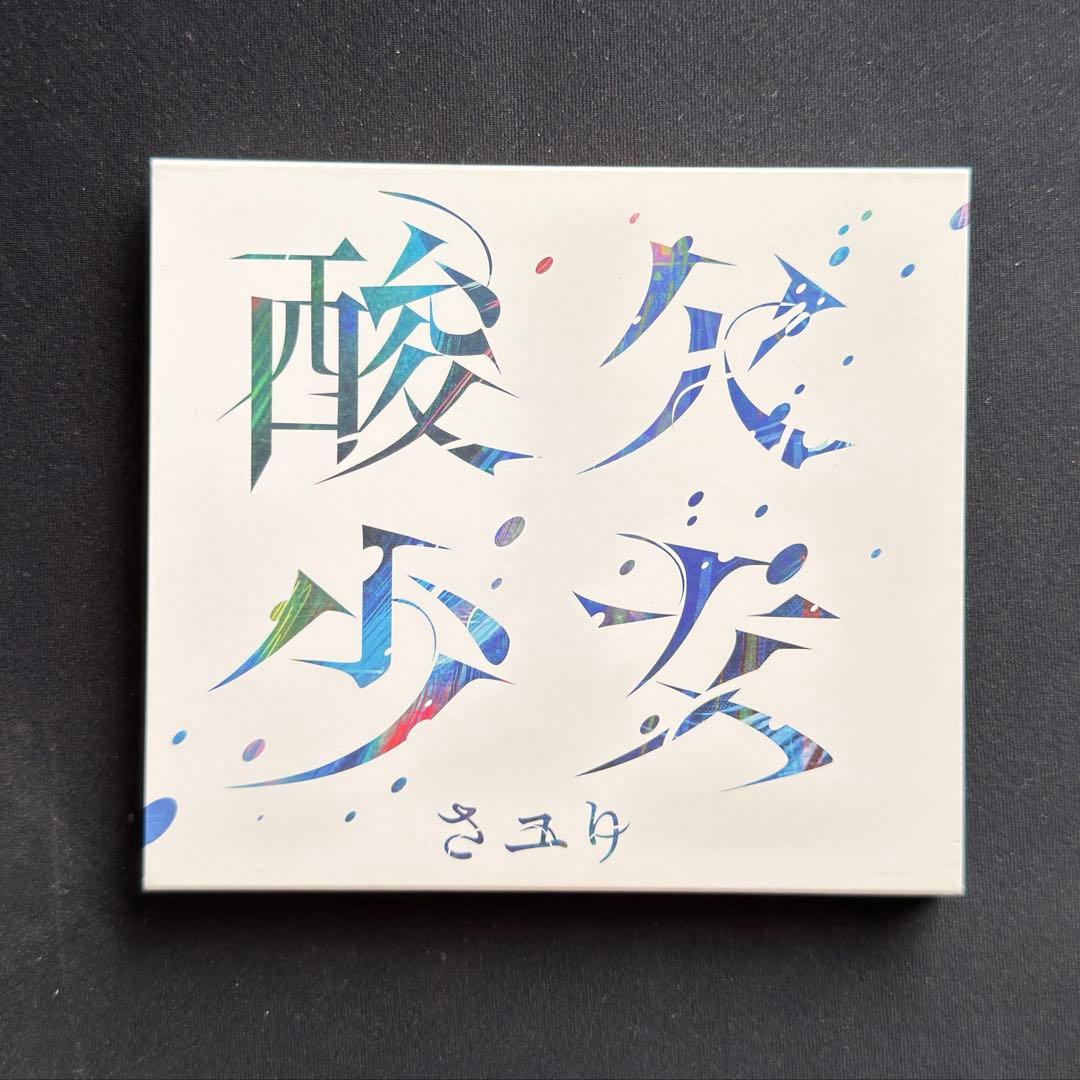 酸欠
少女
さユり